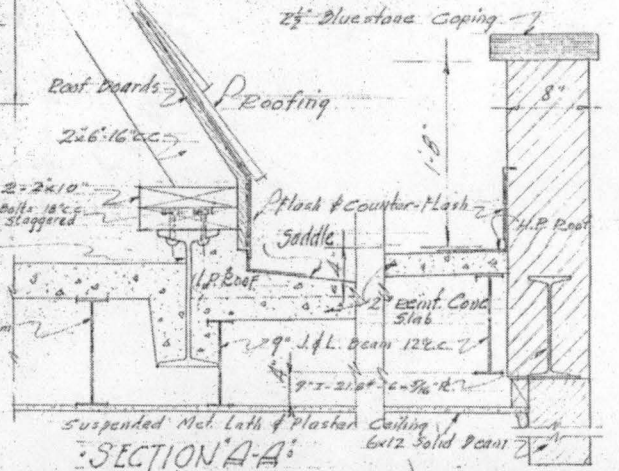 2½" Bluestone Coping
Roof Boards
Roofing
8"
2x6"-16"c.c.
1'-8"
2-2"x10"
Bolts 18"c.c.
staggered
Flash & Counter-Flash
H.P. Roof
Saddle
H.P. Roof
2" Reinf. Conc.
Slab
9" J.&L. Beam 12"c.c.
Suspended Met. Lath & Plaster Ceiling
6x12 Solid Beam
SECTION "A-A"